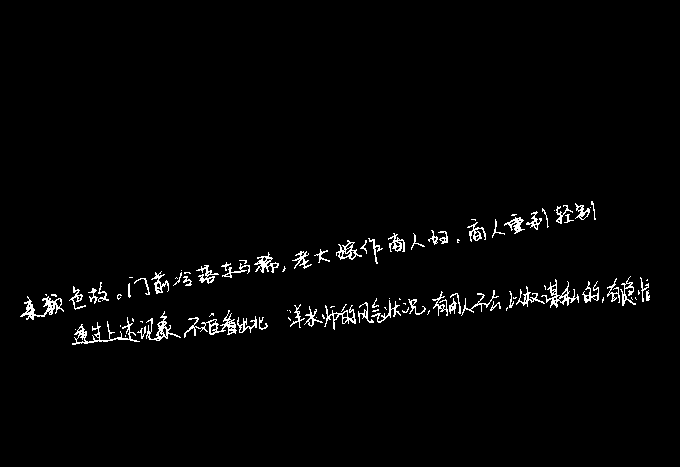 来颜色故。门前冷落车马稀,老大嫁作商人妇。商人重利轻别
透过上述现象,不难看出北洋水师的风气状况,有用人不公,以权谋私的,有隐信